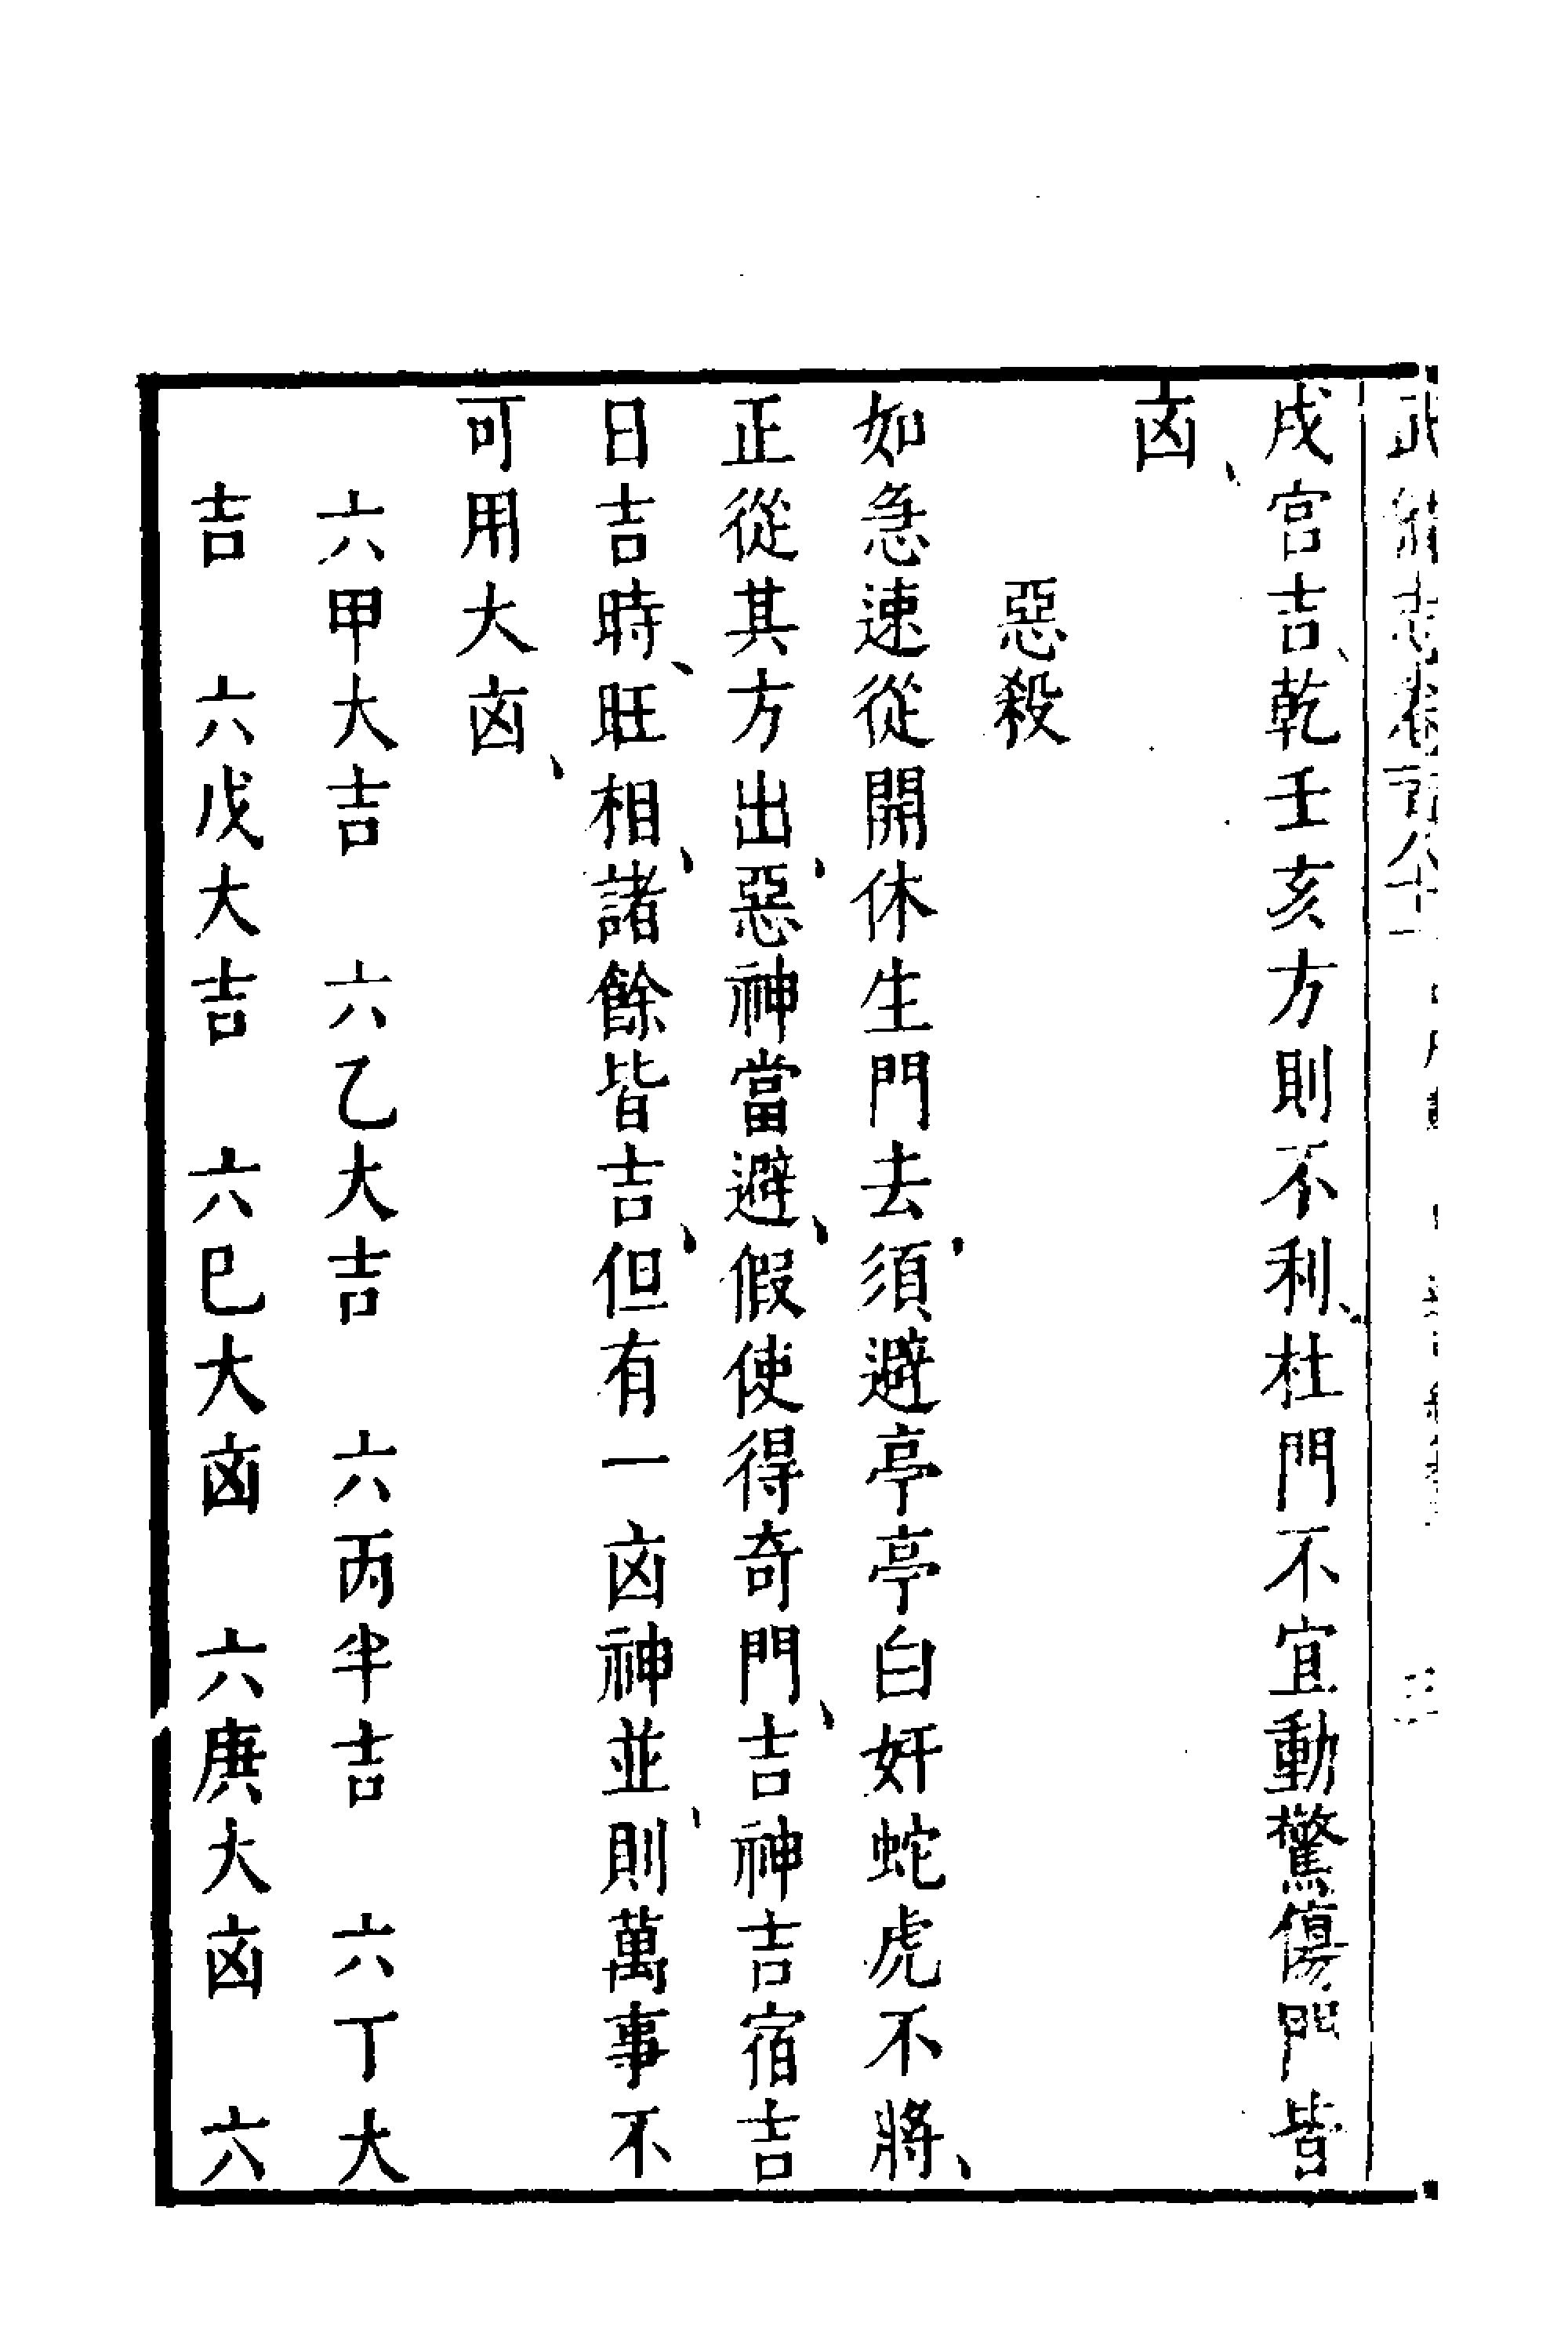 武備志卷一百八十一
戌宮吉、乾壬亥方則不利、杜門不宜動驚傷門皆
凶、
惡殺
如急速從開休生門去、須避亭亭白奸蛇虎不將、
正從其方出、惡神當避、假使得奇門、吉神吉宿吉
日吉時、旺相、諸餘皆吉、但有一凶神並、則萬事不
可用大凶、
六甲大吉　六乙大吉　六丙半吉　六丁大
吉　六戊大吉　六巳大凶　六庚大凶　六